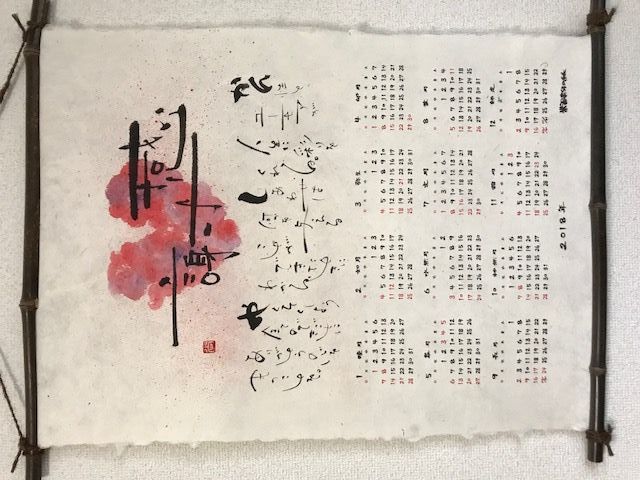 感謝
かん性と
ユーモアが
人生に彩りを
しあわせは
何を与える
わかる
やくそくしよう
全てのできごとに
1 睦月
日 月 火 水 木 金 土
1 2 3 4 5 6
7 8 9 10 11 12 13
14 15 16 17 18 19 20
21 22 23 24 25 26 27
28 29 30 31
2 如月
日 月 火 水 木 金 土
1 2 3
4 5 6 7 8 9 10
11 12 13 14 15 16 17
18 19 20 21 22 23 24
25 26 27 28
3 弥生
日 月 火 水 木 金 土
1 2 3
4 5 6 7 8 9 10
11 12 13 14 15 16 17
18 19 20 21 22 23 24
25 26 27 28 29 30 31
4 卯月
日 月 火 水 木 金 土
1 2 3 4 5 6 7
8 9 10 11 12 13 14
15 16 17 18 19 20 21
22 23 24 25 26 27 28
29 30
5 皐月
日 月 火 水 木 金 土
1 2 3 4 5
6 7 8 9 10 11 12
13 14 15 16 17 18 19
20 21 22 23 24 25 26
27 28 29 30 31
6 水無月
日 月 火 水 木 金 土
1 2
3 4 5 6 7 8 9
10 11 12 13 14 15 16
17 18 19 20 21 22 23
24 25 26 27 28 29 30
7 文月
日 月 火 水 木 金 土
1 2 3 4 5 6 7
8 9 10 11 12 13 14
15 16 17 18 19 20 21
22 23 24 25 26 27 28
29 30 31
8 葉月
日 月 火 水 木 金 土
1 2 3 4
5 6 7 8 9 10 11
12 13 14 15 16 17 18
19 20 21 22 23 24 25
26 27 28 29 30 31
9 長月
日 月 火 水 木 金 土
1
2 3 4 5 6 7 8
9 10 11 12 13 14 15
16 17 18 19 20 21 22
23/30 24 25 26 27 28 29
10 神無月
日 月 火 水 木 金 土
1 2 3 4 5 6
7 8 9 10 11 12 13
14 15 16 17 18 19 20
21 22 23 24 25 26 27
28 29 30 31
11 霜月
日 月 火 水 木 金 土
1 2 3
4 5 6 7 8 9 10
11 12 13 14 15 16 17
18 19 20 21 22 23 24
25 26 27 28 29 30
12 師走
日 月 火 水 木 金 土
1
2 3 4 5 6 7 8
9 10 11 12 13 14 15
16 17 18 19 20 21 22
23/30 24/31 25 26 27 28 29
2018年